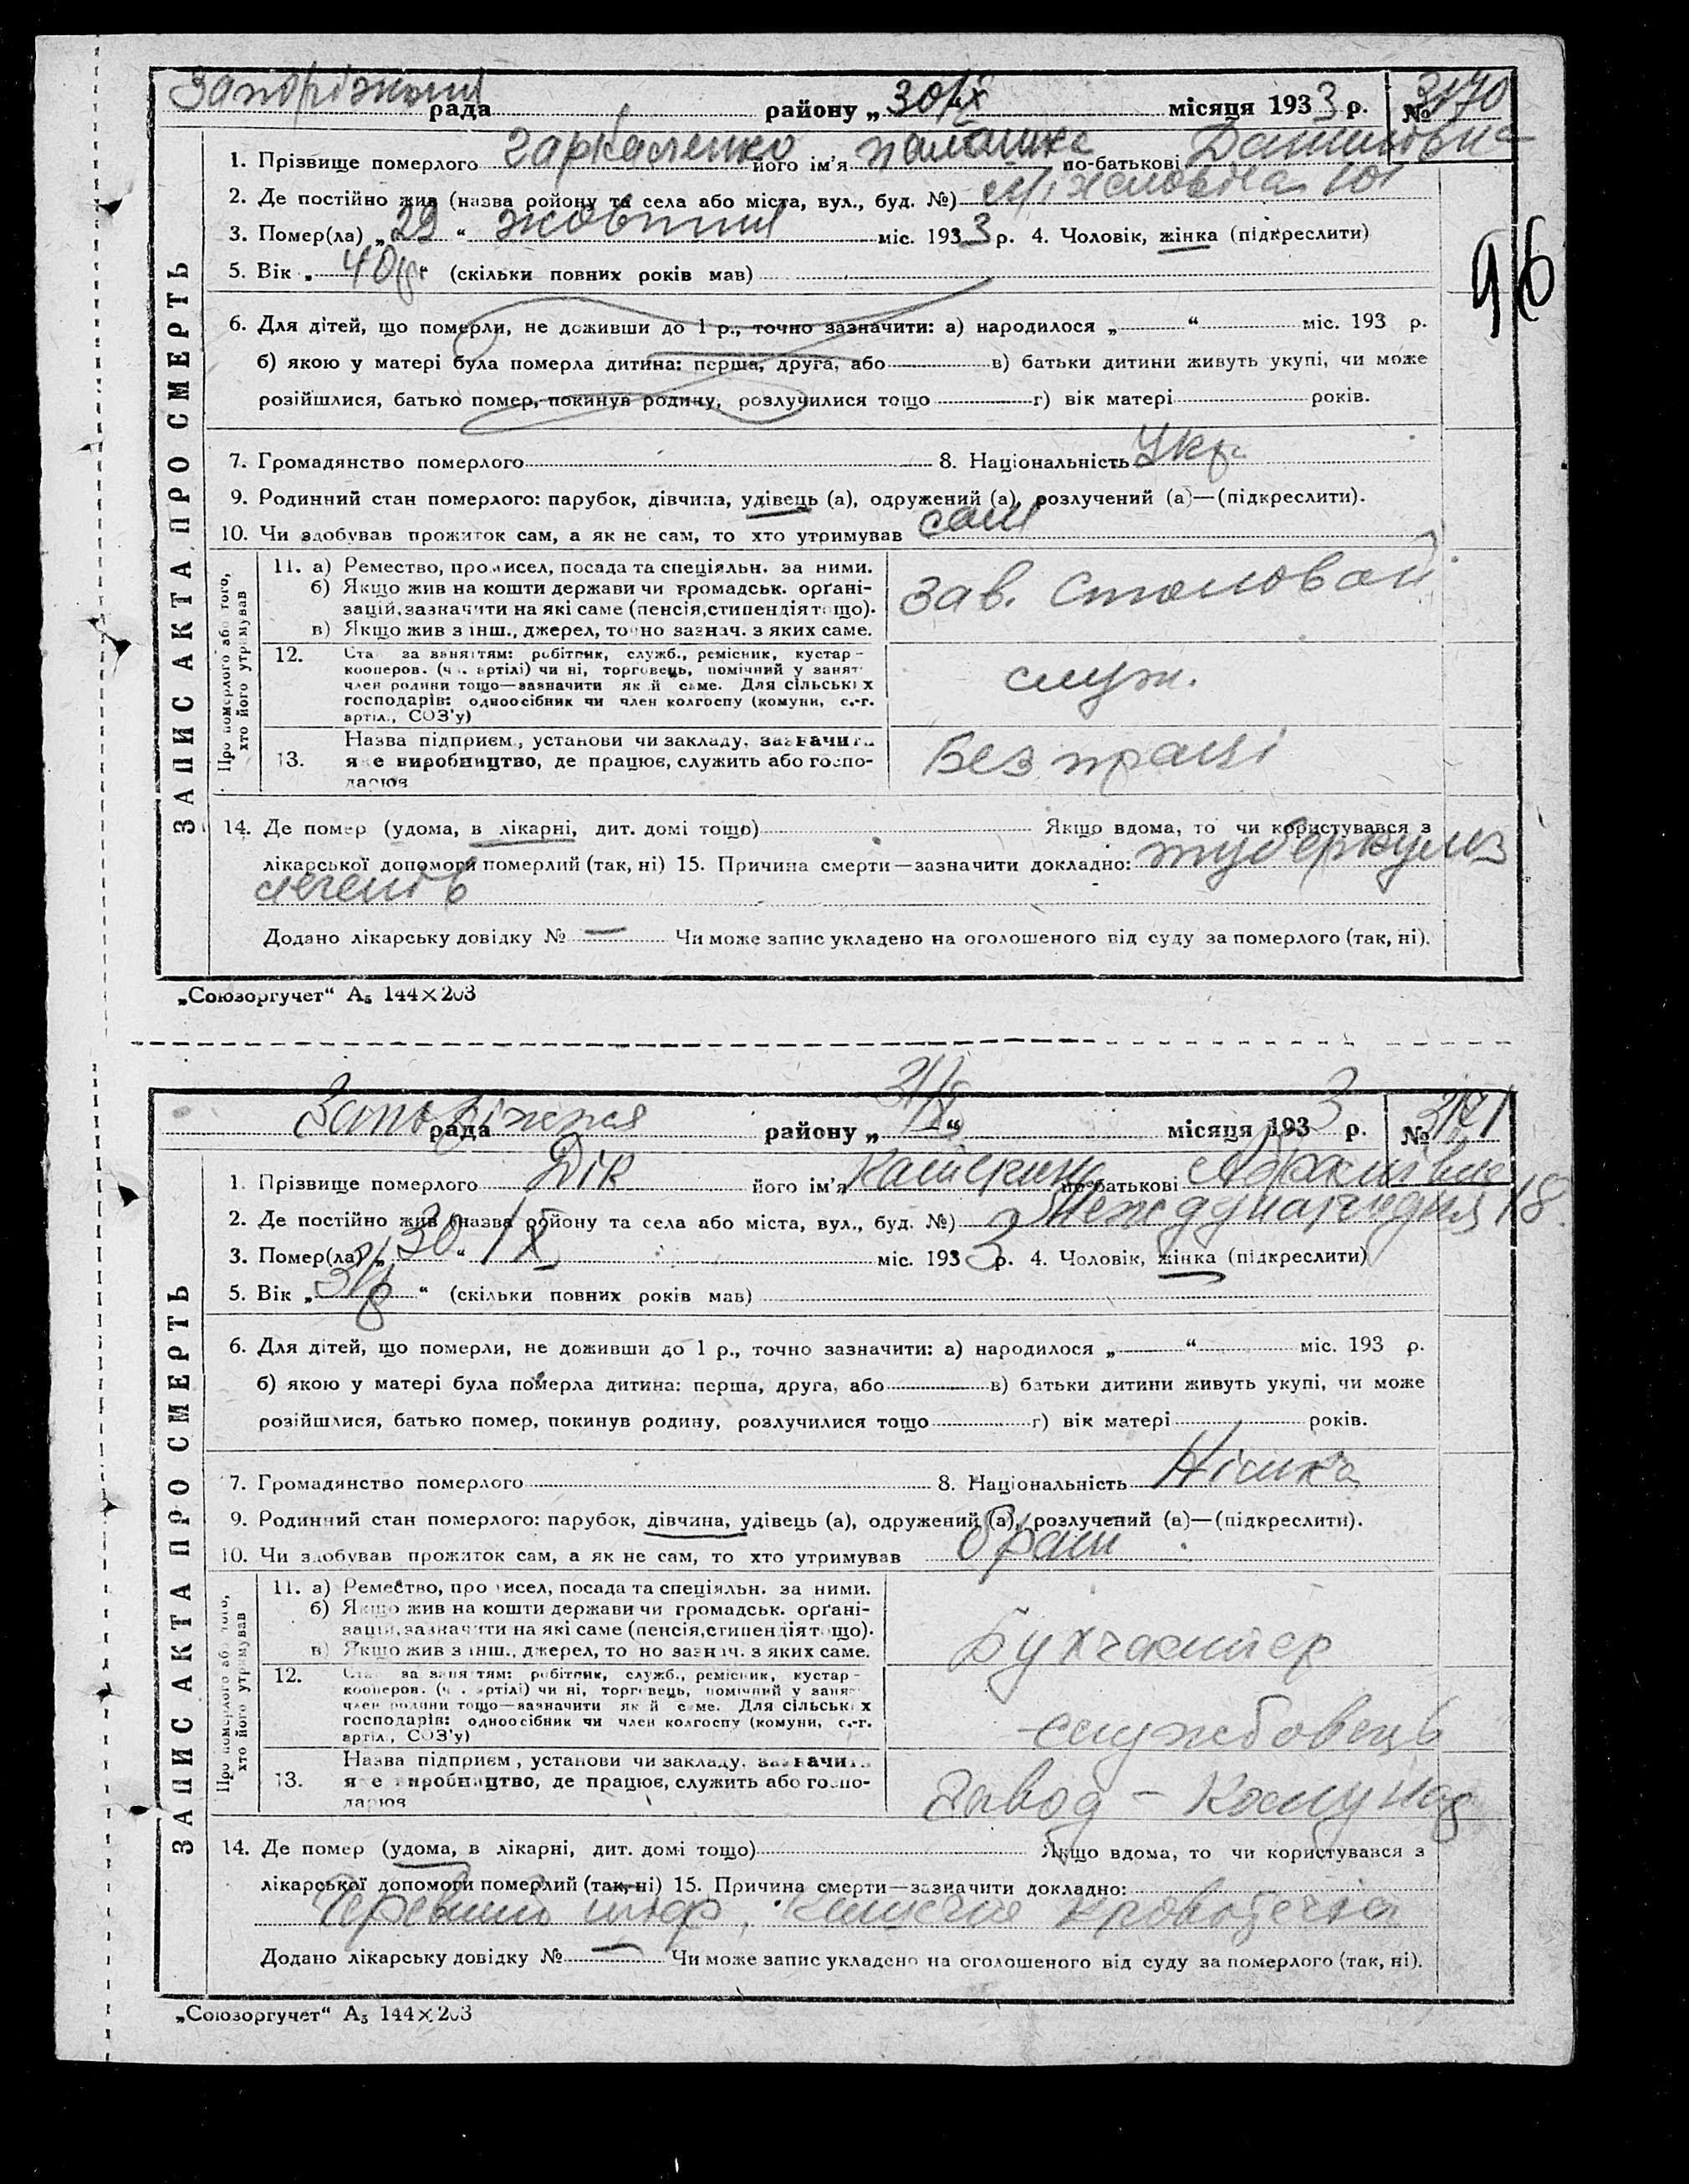 Запоріжжя рада району „30/X“ місяця 1933 р. № 3170
1. Прізвище померлого Гаркаленко його ім'я Палашка по-батькові
2. Де постійно жив (назва ройону та села або міста, вул., буд. №) 101
3. Помер(ла) „29“ жовтня міс. 1933 р. 4. Чоловік, жінка (підкреслити)
5. Вік „40р“ (скільки повних років мав)
6. Для дітей, що померли, не доживши до 1 р., точно зазначити: а) народилося „ “ міс. 193 р.
б) якою у матері була померла дитина: перша, друга, або в) батьки дитини живуть укупі, чи може
розійшлися, батько помер, покинув родину, розлучилися тощо г) вік матері років.
7. Громадянство померлого 8. Національність Укр.
9. Родинний стан померлого: парубок, дівчина, удівець (а), одружений (а), розлучений (а)—(підкреслити).
10. Чи здобував прожиток сам, а як не сам, то хто утримував сам
ЗАПИС АКТА ПРО СМЕРТЬ
Про померлого або того, хто його утримував
11. а) Ремество, промисел, посада та спеціяльн. за ними.
б) Якщо жив на кошти держави чи громадськ. орґані-
зацій, зазначити на які саме (пенсія, стипендія тощо).
в) Якщо жив з інш., джерел, точно зазнач. з яких саме.
Зав. столовой
12. Стан за заняттям: робітник, служб., ремісник, кустар-
кооперов. (чл. артілі) чи ні, торговець, помічний у занят.
член родини тощо—зазначити який саме. Для сільських
господарів: одноосібник чи член колгоспу (комуни, с.-г.
артіл., СОЗ'у)
служ.
13. Назва підприєм., установи чи закладу, зазначити
яке виробництво, де працює, служить або госпо-
дарює
Без праці
14. Де помер (удома, в лікарні, дит. домі тощо) Якщо вдома, то чи користувався з
лікарської допомоги померлий (так, ні) 15. Причина смерти—зазначити докладно: туберкульоз
легенів
Додано лікарську довідку № — Чи може запис укладено на оголошеного від суду за померлого (так, ні).
„Союзоргучет“ А₅ 144×203
96
Запоріжжя рада району „31/X“ місяця 1933 р. № 3171
1. Прізвище померлого Дік його ім'я Катерина по-батькові Абрамівна
2. Де постійно жив (назва ройону та села або міста, вул., буд. №) 18
3. Помер(ла) „30“ /X міс. 1933 р. 4. Чоловік, жінка (підкреслити)
5. Вік „ “ (скільки повних років мав)
6. Для дітей, що померли, не доживши до 1 р., точно зазначити: а) народилося „ “ міс. 193 р.
б) якою у матері була померла дитина: перша, друга, або в) батьки дитини живуть укупі, чи може
розійшлися, батько помер, покинув родину, розлучилися тощо г) вік матері років.
7. Громадянство померлого 8. Національність Німка
9. Родинний стан померлого: парубок, дівчина, удівець (а), одружений (а), розлучений (а)—(підкреслити).
10. Чи здобував прожиток сам, а як не сам, то хто утримував брат
ЗАПИС АКТА ПРО СМЕРТЬ
Про померлого або того, хто його утримував
11. а) Ремество, промисел, посада та спеціяльн. за ними.
б) Якщо жив на кошти держави чи громадськ. орґані-
зацій, зазначити на які саме (пенсія, стипендія тощо).
в) Якщо жив з інш., джерел, точно зазнач. з яких саме.
Бухгалтер
12. Стан за заняттям: робітник, служб., ремісник, кустар-
кооперов. (чл. артілі) чи ні, торговець, помічний у занят.
член родини тощо—зазначити який саме. Для сільських
господарів: одноосібник чи член колгоспу (комуни, с.-г.
артіл., СОЗ'у)
службовець
13. Назва підприєм., установи чи закладу, зазначити
яке виробництво, де працює, служить або госпо-
дарює
Завод - Комунар
14. Де помер (удома, в лікарні, дит. домі тощо) Якщо вдома, то чи користувався з
лікарської допомоги померлий (так, ні) 15. Причина смерти—зазначити докладно:
Черевний тиф, кишечна кровотеча
Додано лікарську довідку № — Чи може запис укладено на оголошеного від суду за померлого (так, ні).
„Союзоргучет“ А₅ 144×203